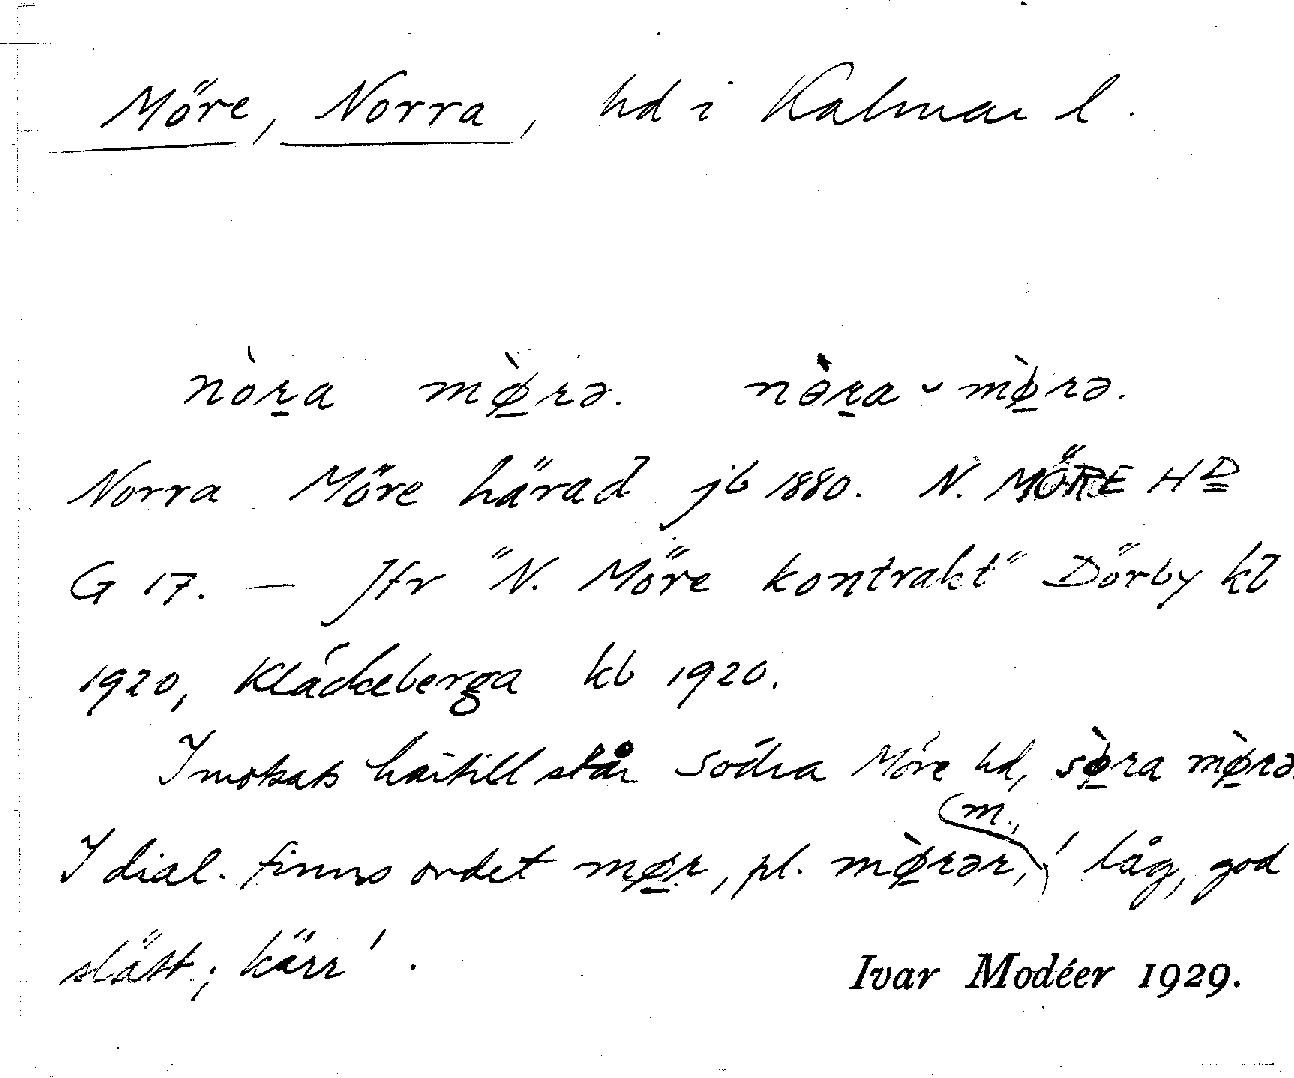 Möre, Norra, hd i Kalmar l.
nòṟa mø̱̀rə. nòṟa ̆ mø̱̀rə.
Norra Möre härad jb 1880. N. MÖRE HD
G 17. — Jfr "N. Möre kontrakt" Dörby kb
1920, Kläckeberga kb 1920.
I motsats härtill står Södra Möre hd, sø̱̀ra mø̱̀rə.
I dial. finns ordet mø̱r, pl. mø̱̀rər, m., ' låg, god
slätt; kärr'.
Ivar Modéer 1929.